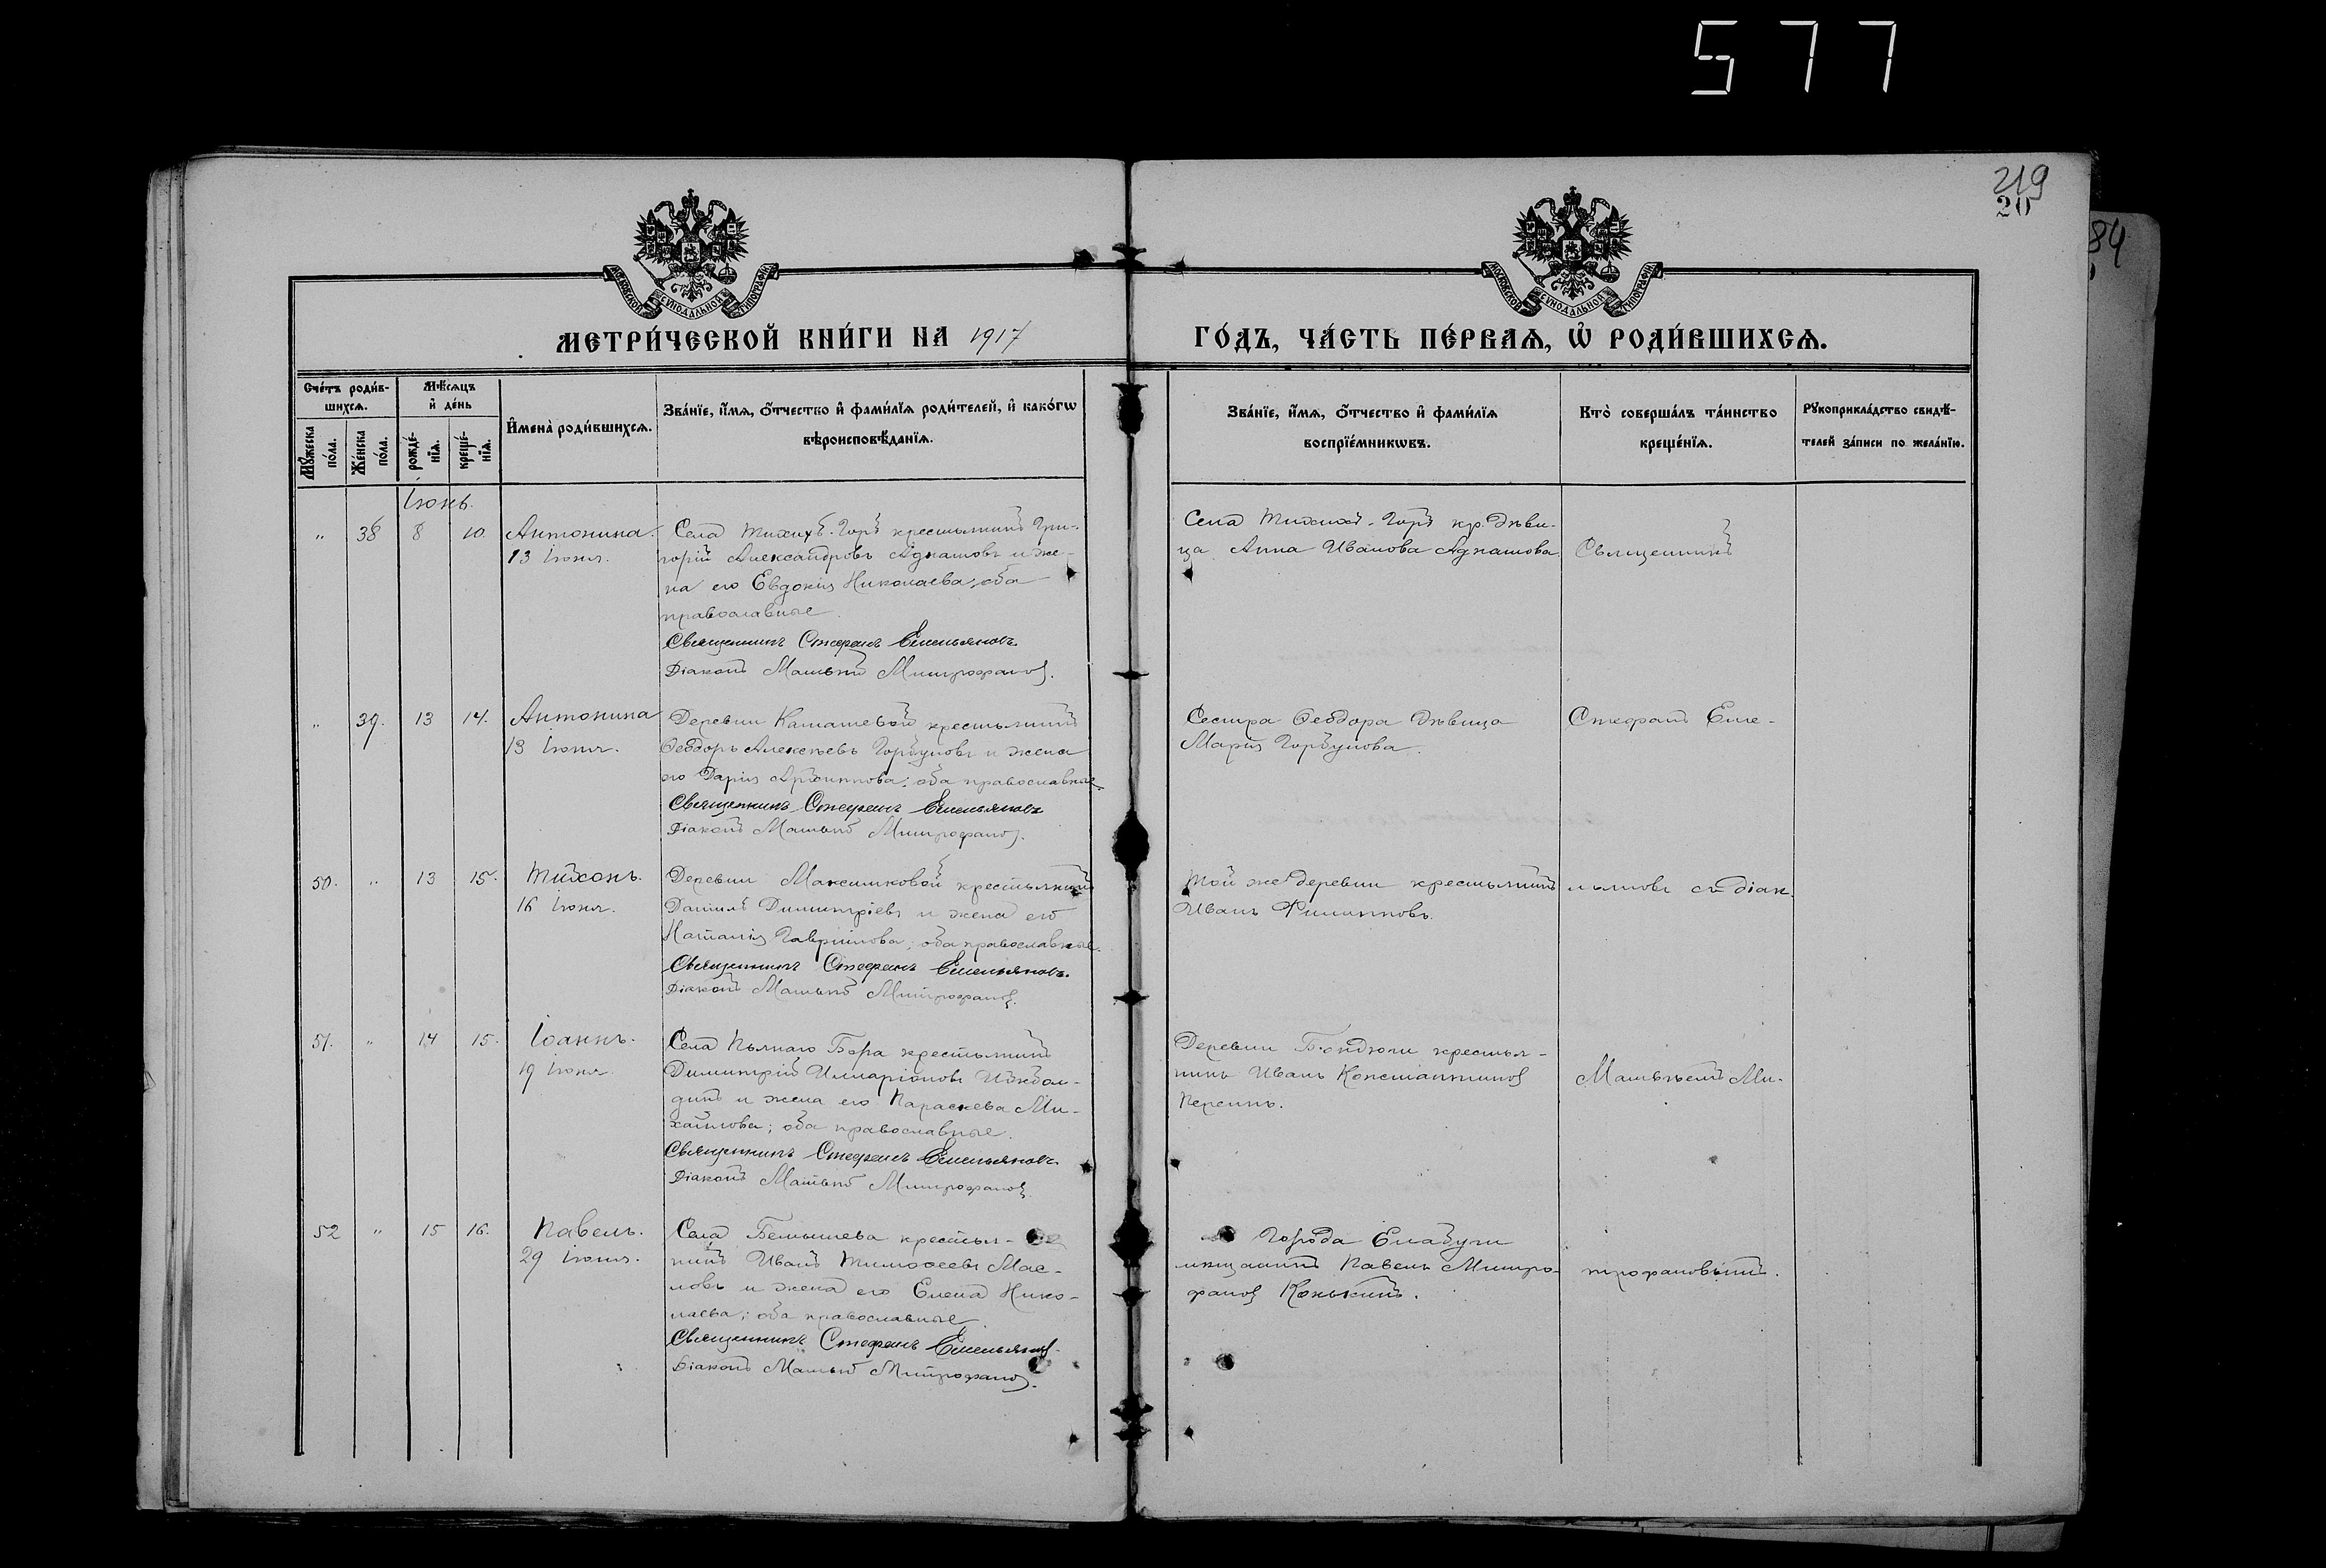 577
219
20
84
МОСКОВСКОЙ СѴНОДАЛЬНОЙ ТИПОГРАФІИ
МОСКОВСКОЙ СѴНОДАЛЬНОЙ ТИПОГРАФІИ
МЕТРИ́ЧЕСКОЙ КНИ́ГИ НА 1917
ГО́ДЪ, ЧА́СТЬ ПЕ́РВАѦ, Ѡ҆ РОДИ́ВШИХСѦ.
Сче́тъ роди́в-
шихсѧ.
Мꙋ́жеска по́ла.
Же́нска по́ла.
Мѣ́сѧцъ
и҆ де́нь
рожде́-
нїѧ.
креще́-
нїѧ.
И҆мена̀ роди́вшихсѧ.
Зва́нїе, и҆́мѧ, ѻ҆́тчество и҆ фами́лїѧ роди́телей, и҆ како́гѡ
вѣроисповѣ́данїѧ.
Зва́нїе, и҆́мѧ, ѻ҆́тчество и҆ фами́лїѧ
воспрїе́мникѡвъ.
Кто̀ соверша́лъ та́инство
креще́нїѧ.
Рꙋкоприкла́дство свидѣ́-
телей за́писи по жела́нїю.
Іюнь.
" 38 8 10. Антонина.
13 Іюня.
Села Тихихъ-Горъ крестьянинъ Гри-
горій Александровъ Аднашовъ и же-
на его Евдокія Николаева; оба
православные.
Священникъ Стефанъ Емельяновъ.
Діаконъ Матѳей Митрофановъ.
Села Тихихъ-Горъ кр. дѣви-
ца Анна Иванова Аднашова
Священникъ
" 39. 13 14. Антонина
13 Іюня.
Деревни Каташевой крестьянинъ
Ѳеодоръ Алексѣевъ Горбуновъ и жена
его Дарія; оба православные.
Священникъ Стефанъ Емельяновъ
Діаконъ Матѳей Митрофановъ.
Сестра Ѳеодора дѣвица
Марія Горбунова.
Стефанъ Еме-
50. " 13 15. Тихонъ.
16 Іюня.
Деревни Максимковой крестьянинъ
Даніилъ Димитріевъ и жена его
Наталія Гавріилова; оба православные.
Священникъ Стефанъ Емельяновъ.
Діаконъ Матѳей Митрофановъ.
Той же деревни крестьянинъ
Иванъ Филипповъ.
льяновъ съ діак.
51. " 14 15. Іоаннъ.
19 Іюня.
Села Пьянаго Бора крестьянинъ
Димитрій Илларіоновъ
и жена его Параскева Ми-
хаилова; оба православные.
Священникъ Стефанъ Емельяновъ.
Діаконъ Матѳей Митрофановъ.
Деревни Бондюги крестья-
нинъ Иванъ Константиновъ
Матѳеемъ Ми-
52 " 15 16. Павелъ.
29 Іюня.
Села Бемышева крестья-
нинъ Иванъ Тимоѳеевъ Мас-
ловъ и жена его Елена Нико-
лаева; оба православные.
Священникъ Стефанъ Емельяновъ.
Діаконъ Матѳей Митрофановъ.
Города Елабуги
мѣщанинъ Павелъ Митро-
фановъ Конькинъ.
трофановымъ.